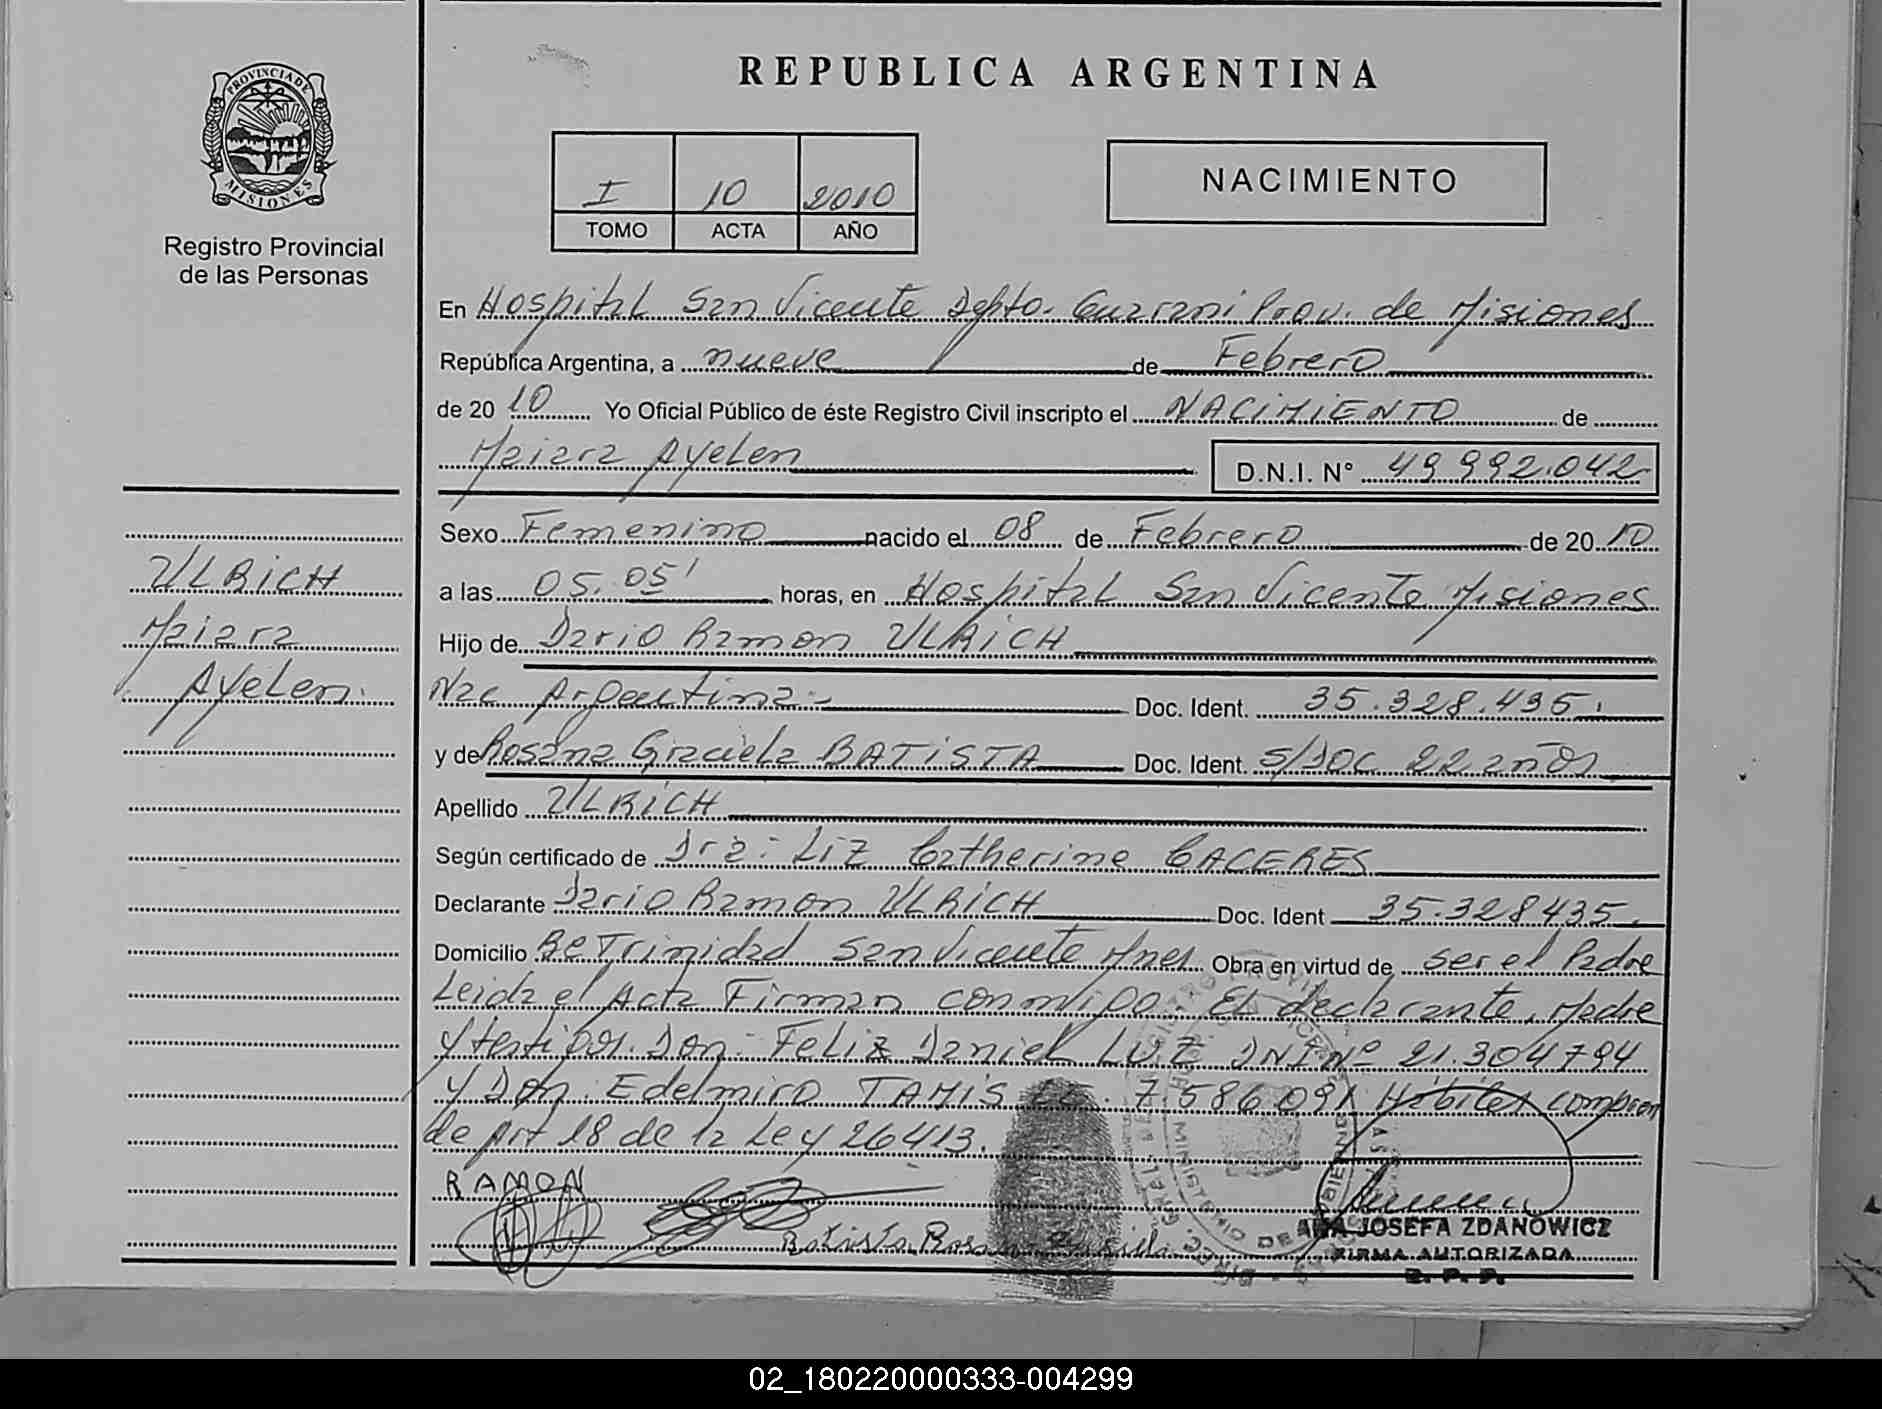 PROVINCIA DE
MISIONES
Registro Provincial
de las Personas
ULRICH
Maiara
Ayelen.
REPUBLICA ARGENTINA
I 10 2010
TOMO ACTA AÑO
NACIMIENTO
En Hospital San Vicente Depto. Guarani Prov. de Misiones
República Argentina, a nueve de Febrero
de 2010 Yo Oficial Público de éste Registro Civil inscripto el NACIMIENTO de
Maiara Ayelen D.N.I. N° 49992.042
Sexo Femenino nacido el 08 de Febrero de 2010
a las 05.05' horas, en Hospital San Vicente Misiones
Hijo de Dario Ramon ULRICH
Nac Argentina- Doc. Ident. 35.328.435.
y de Rosana Graciela BATISTA Doc. Ident. S/DOC 22 años
Apellido ULRICH
Según certificado de Dra: Liz Catherine CACERES
Declarante Dario Ramon ULRICH Doc. Ident 35.328435.
Domicilio Be Trinidad San Vicente Mnes Obra en virtud de ser el Padre
Leida el Acta Firman conmigo. El declarante, Madre
y testigos. Don: Feliz Daniel LUZ DNI Nº 21.304794
y Don: Edelmiro TAMIS 7586091 Hábiles compren
de Art 18 de la Ley 26413.
RAMON
Batista Rosana
ANA JOSEFA ZDANOWICZ
FIRMA AUTORIZADA
R. P. P.
02_180220000333-004299